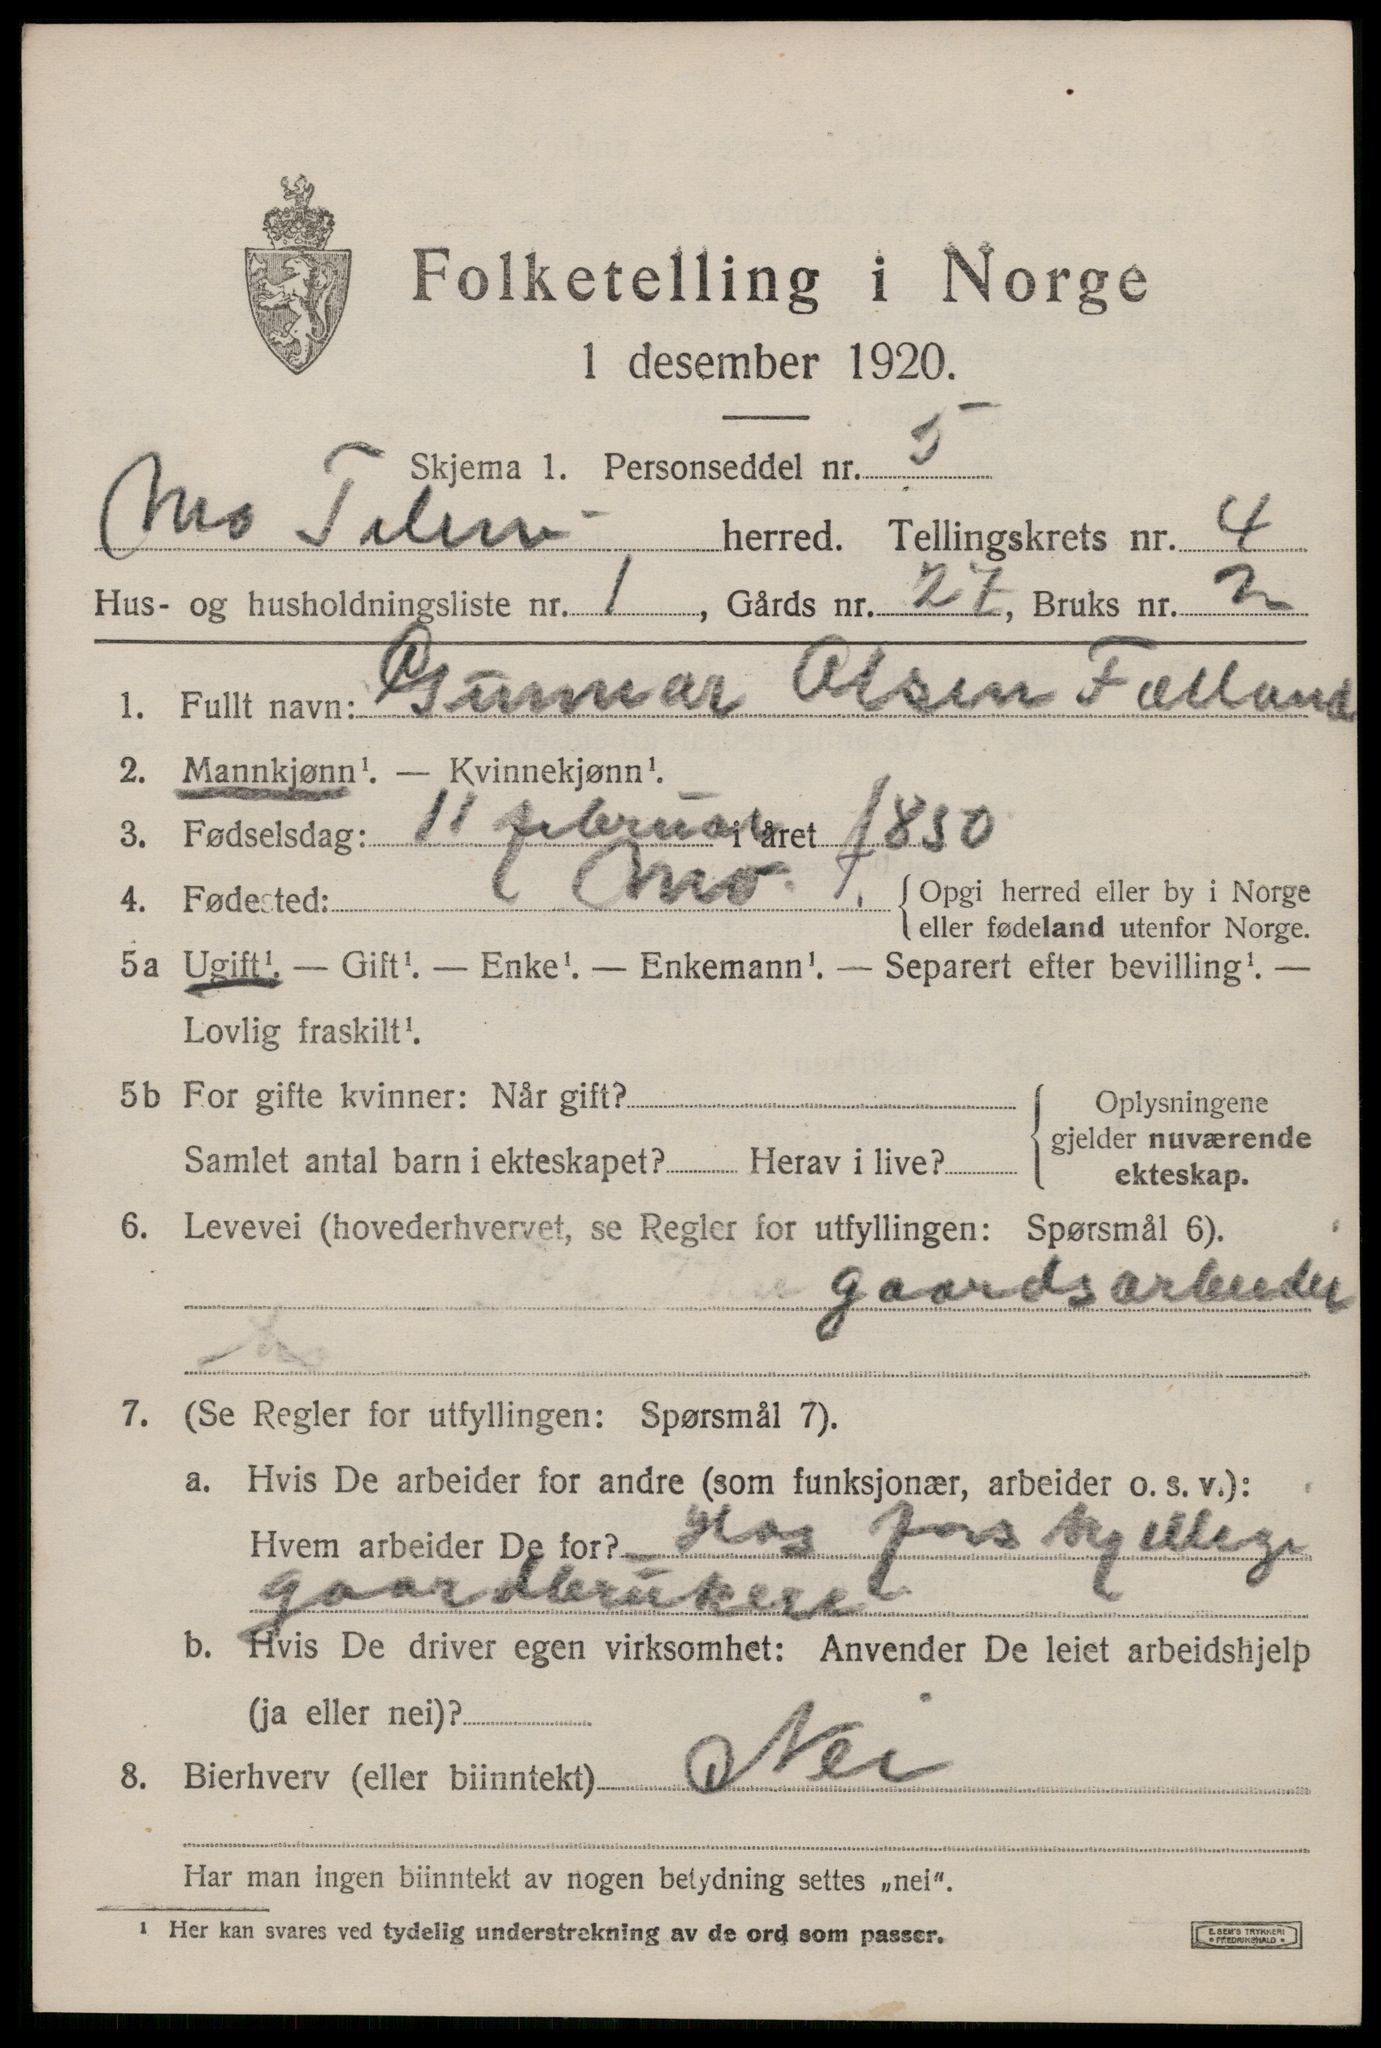 Folketelling i Norge
1 desember 1920.
Skjema 1. Personseddel nr. 5
Mo Telem herred. Tellingskrets nr. 4
Hus- og husholdningsliste nr. 1, Gårds nr. 27, Bruks nr. 2
1. Fullt navn: Gunnar Olsen Fælland
2. Mannkjønn¹. — Kvinnekjønn¹.
3. Fødselsdag: 11 februar i året 1850
4. Fødested: Mo T. Opgi herred eller by i Norge
eller fødeland utenfor Norge.
5a Ugift¹. — Gift¹. — Enke¹. — Enkemann¹. — Separert efter bevilling¹. —
Lovlig fraskilt¹.
5b For gifte kvinner: Når gift? Oplysningene
gjelder nuværende
Samlet antal barn i ekteskapet? Herav i live?
ekteskap.
6. Levevei (hovederhvervet, se Regler for utfyllingen: Spørsmål 6).
gaardsarbeider
7. (Se Regler for utfyllingen: Spørsmål 7).
a. Hvis De arbeider for andre (som funksjonær, arbeider o. s. v.):
Hvem arbeider De for? Hos forskjellige
gaardbrukere
b. Hvis De driver egen virksomhet: Anvender De leiet arbeidshjelp
(ja eller nei)?
8. Bierhverv (eller biinntekt) Nei
Har man ingen biinntekt av nogen betydning settes „nei".
¹ Her kan svares ved tydelig understrekning av de ord som passer.
E. SEM'S TRYKKERI
FREDRIKSHALD